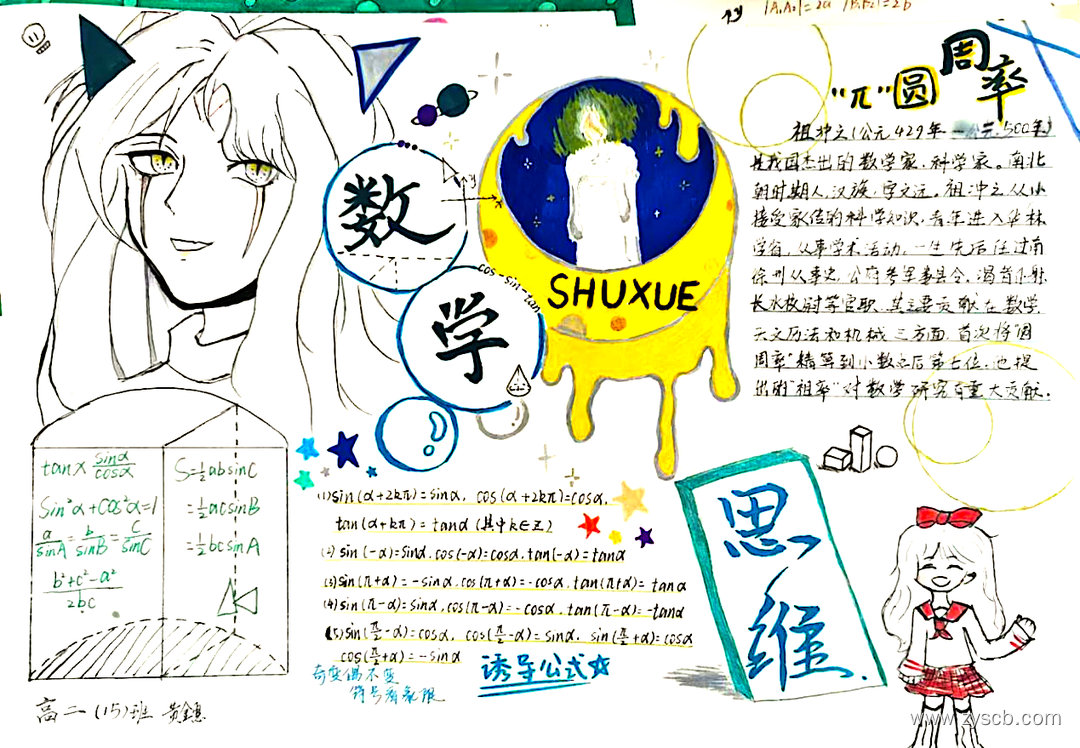 |A₁A₂|=2a |B₁B₂|=2b
y
数
y
x
学
cos-sin-tan
SHUXUE
"π"圆周率
祖冲之(公元429年—公元500年)
是我国杰出的数学家,科学家。南北
朝时期人,汉族,字文远。祖冲之从小
接受家传的科学知识,青年进入华林
学省,从事学术活动。一生先后任过南
徐州从事史,公府参军,县令,谒者仆射
长水校尉等官职,其主要贡献在数学,
天文历法和机械三方面,首次将"圆
周率"精算到小数之后第七位,他提
出的"祖率"对数学研究有重大贡献。
tanx sinα/cosα
Sin²α+cos²α=1
a/sinA=b/sinB=c/sinC
b²+c²-a²/2bc
S=½absinC
=½acsinB
=½bcsinA
(1)sin(α+2kπ)=sinα, cos(α+2kπ)=cosα,
tan(α+kπ)=tanα(其中k∈Z)
(2)sin(-α)=sinα.cos(-α)=cosα.tan(-α)=tanα
(3)sin(π+α)=-sinα.cos(π+α)=-cosα.tan(π+α)=tanα
(4)sin(π-α)=sinα,cos(π-α)=-cosα.tan(π-α)=-tanα
(5)sin(π/2-α)=cosα, cos(π/2-α)=sinα, sin(π/2+α)=cosα
cos(π/2+α)=-sinα
奇变偶不变
符号看象限
诱导公式
思
维
高二(15)班
www.zyscb.com